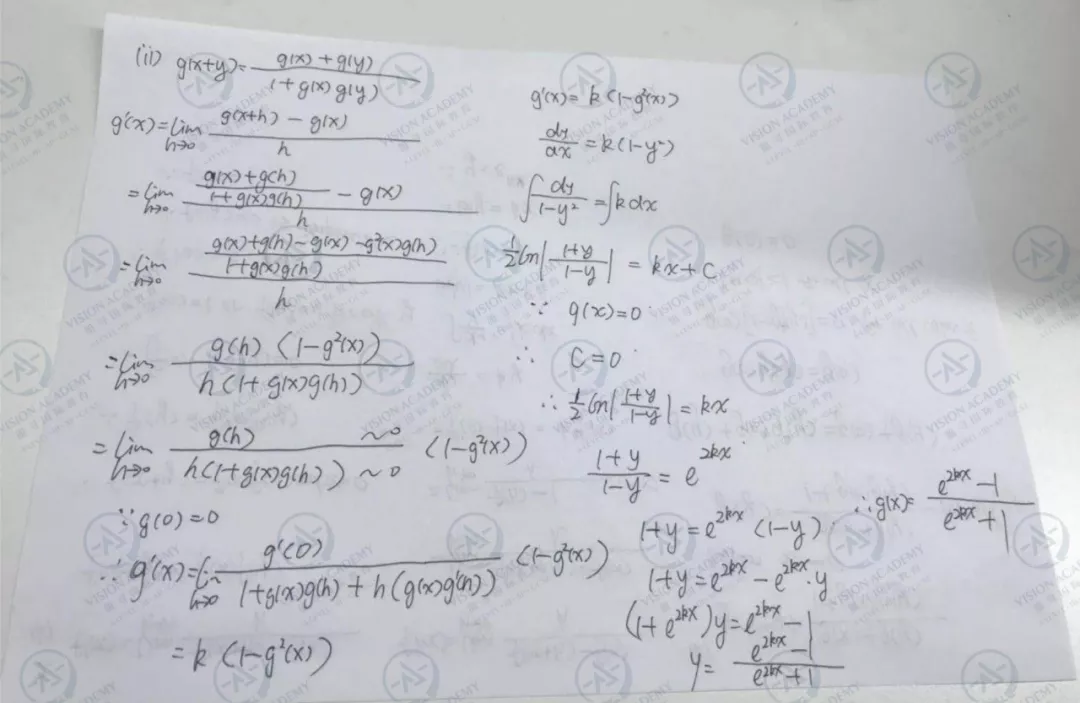 (ii) g(x+y)= \frac{g(x)+g(y)}{1+g(x)g(y)}
g'(x)=\lim_{h→0} \frac{g(x+h)-g(x)}{h}
=\lim_{h→0} \frac{\frac{g(x)+g(h)}{1+g(x)g(h)}-g(x)}{h}
=\lim_{h→0} \frac{\frac{g(x)+g(h)-g(x)-g²(x)g(h)}{1+g(x)g(h)}}{h}
=\lim_{h→0} \frac{g(h)(1-g²(x))}{h(1+g(x)g(h))}
=\lim_{h→0} \frac{g(h) ~0}{h(1+g(x)g(h)) ~0} (1-g²(x))
∵ g(0)=0
∴ g'(x)=\lim_{h→0} \frac{g'(0)}{1+g(x)g(h)+h(g(x)g'(h))} (1-g²(x))
= k (1-g²(x))
g'(x)= k (1-g²(x))
\frac{dy}{dx} = k(1-y²)
∫\frac{dy}{1-y²} = ∫k dx
\frac{1}{2} ln|\frac{1+y}{1-y}| = kx+C
∵ g(x)=0
∴ C=0
∴ \frac{1}{2} ln|\frac{1+y}{1-y}| = kx
\frac{1+y}{1-y} = e^{2kx}
1+y = e^{2kx} (1-y)
1+y = e^{2kx} - e^{2kx}·y
(1+e^{2kx})y = e^{2kx} - 1
y = \frac{e^{2kx}-1}{e^{2kx}+1}
∴ g(x)= \frac{e^{2kx}-1}{e^{2kx}+1}
VISION ACADEMY